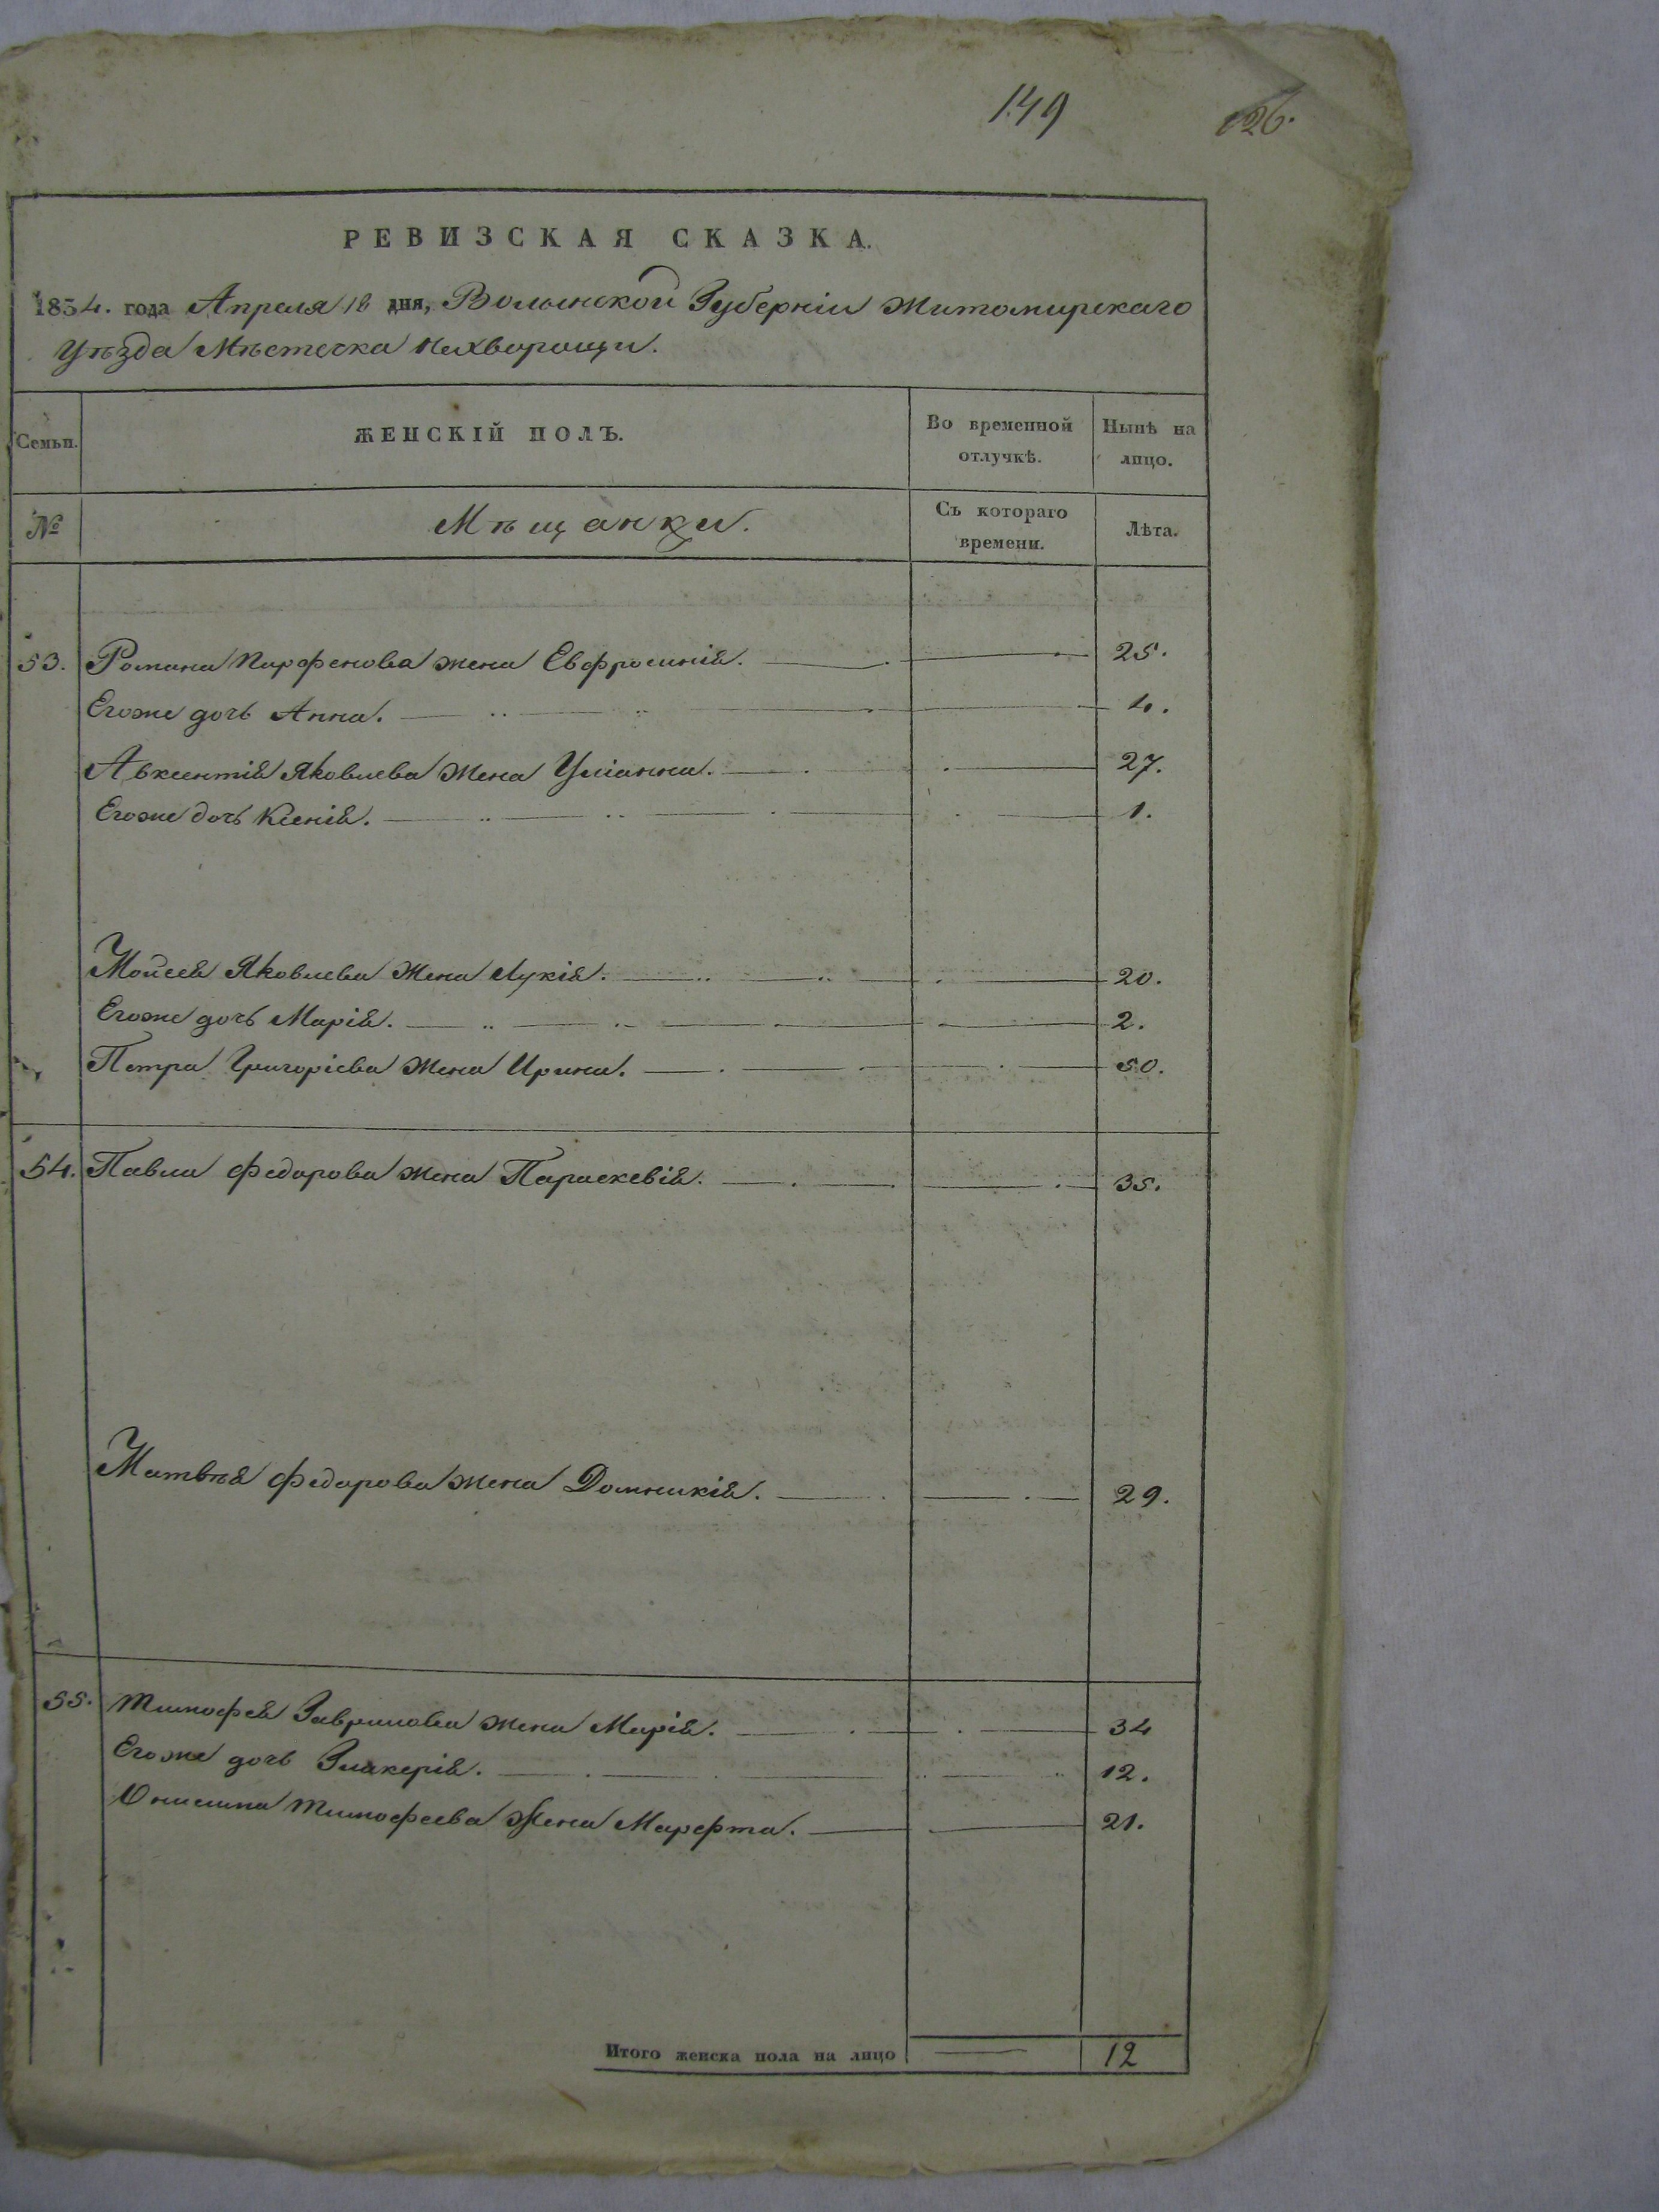 149
126.
РЕВИЗСКАЯ СКАЗКА.
1834. года Апреля 18 дня, Волынской Губерніи Житомирскаго
Уѣзда Мѣстечка Нехворощи.
Семьи.
ЖЕНСКІЙ ПОЛЪ.
Во временной отлучкѣ.
Нынѣ на лицо.
№
Мѣщанки.
Съ котораго времени.
Лѣта.
53. Романа Парфенова жена Евфросиній. 25.
Егоже дочь Анна. 4.
Авксентій Яковлева жена Уліанна. 27.
Егоже дочь Ксеній. 1.
Мойсей Яковлева жена Лукій. 20.
Егоже дочь Марій. 2.
Петра Григоріева жена Ирина. 50.
54. Павла Федорова жена Параскевій. 35.
Матвѣй Федорова жена Домникій. 29.
55. Тимофей Гаврилова жена Марій. 34
Егоже дочь Гликерій. 12.
Онисима Тимофеева жена Марфта. 21.
Итого женска пола на лицо 12